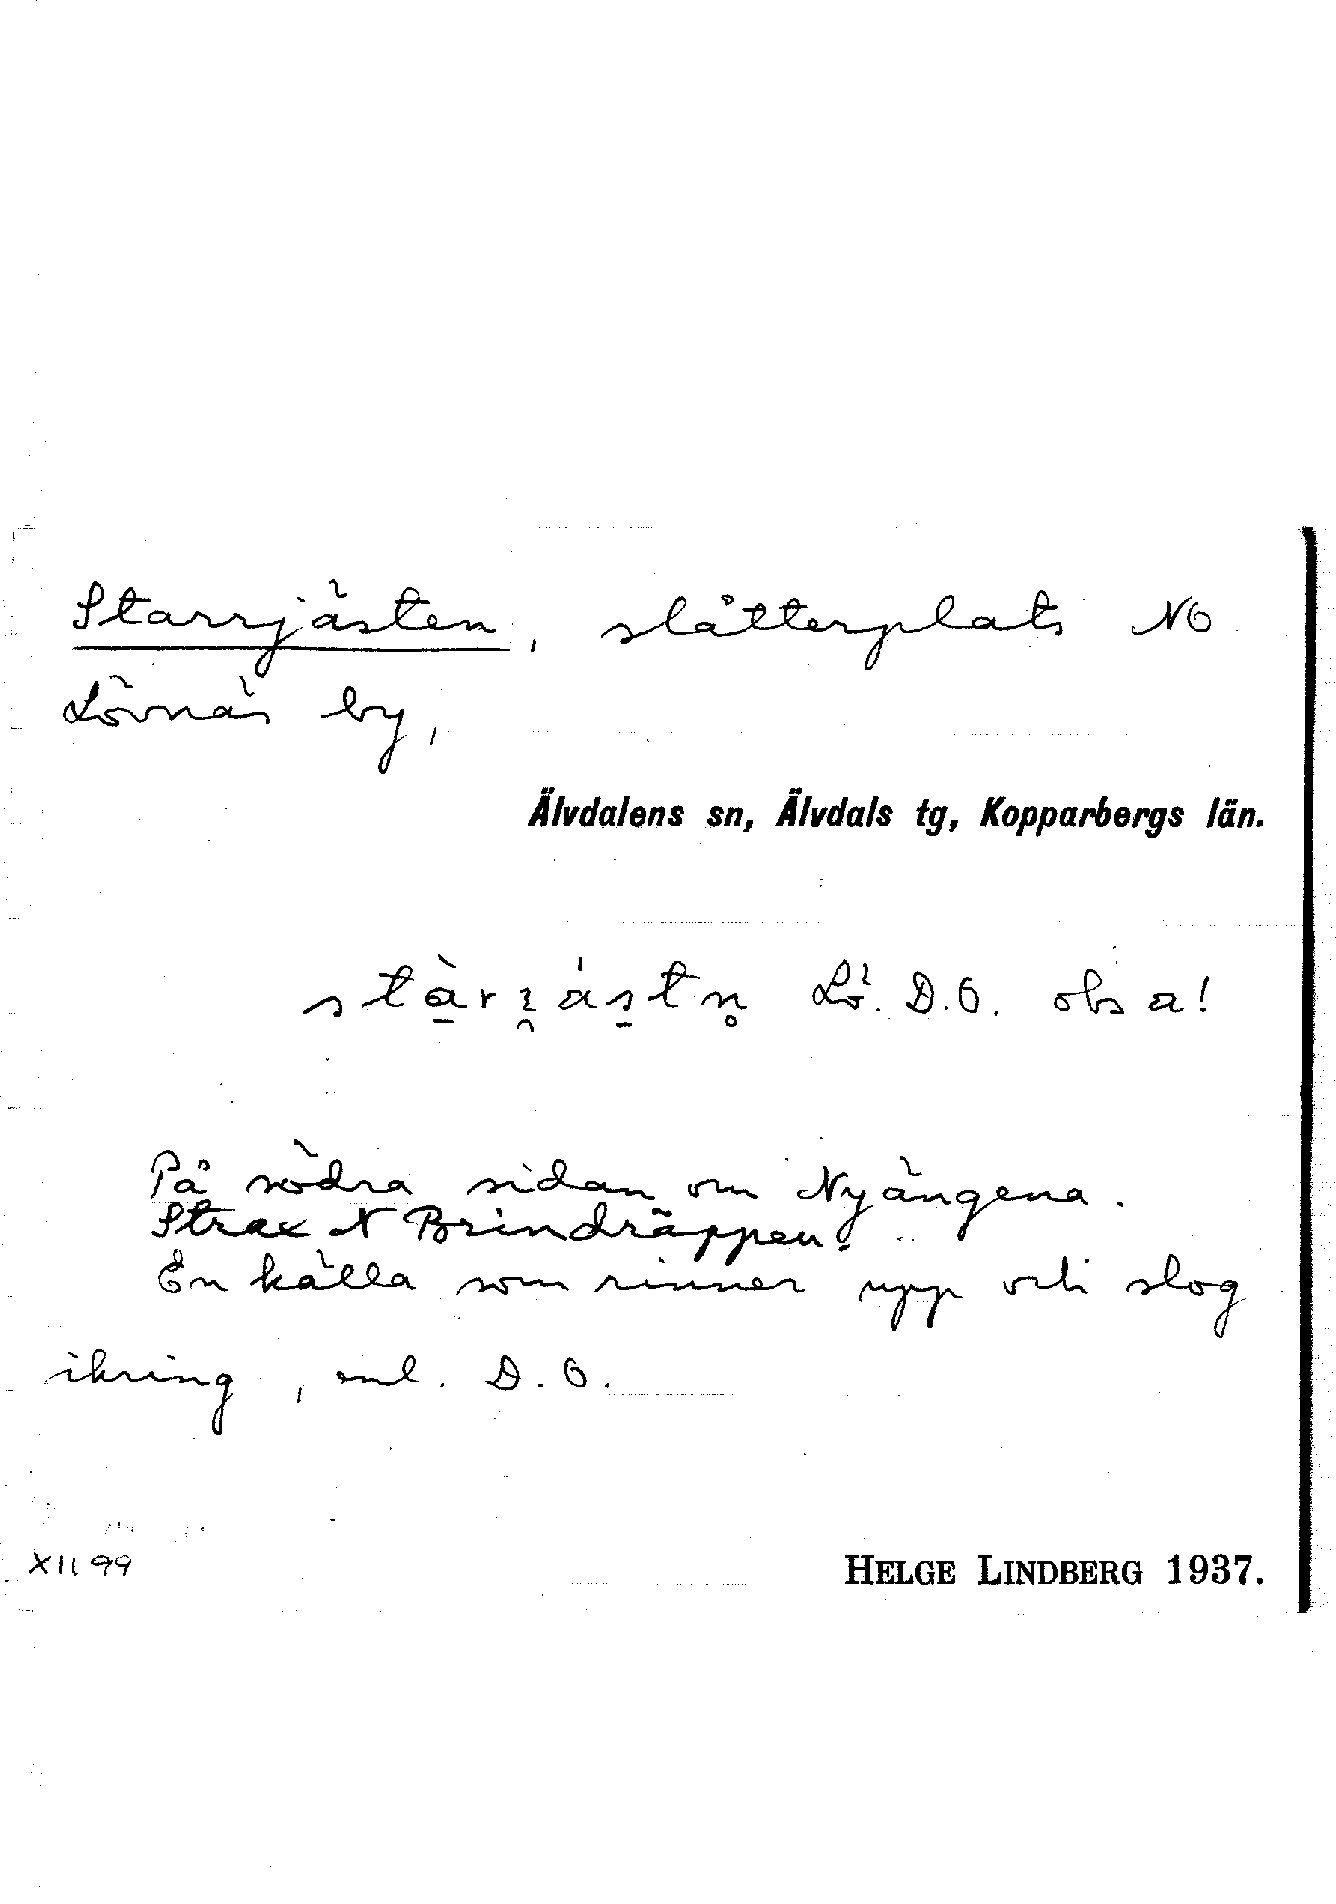 Starrjästen, slåtterplats NO
Lövnäs by,
Älvdalens sn, Älvdals tg, Kopparbergs län.
Lö. D.O. obs a!
På södra sidan om Nyängena.
Strax N Brindräppen.
En källa som rinner upp och slog
ikring, enl. D.O.
XII 99
HELGE LINDBERG 1937.